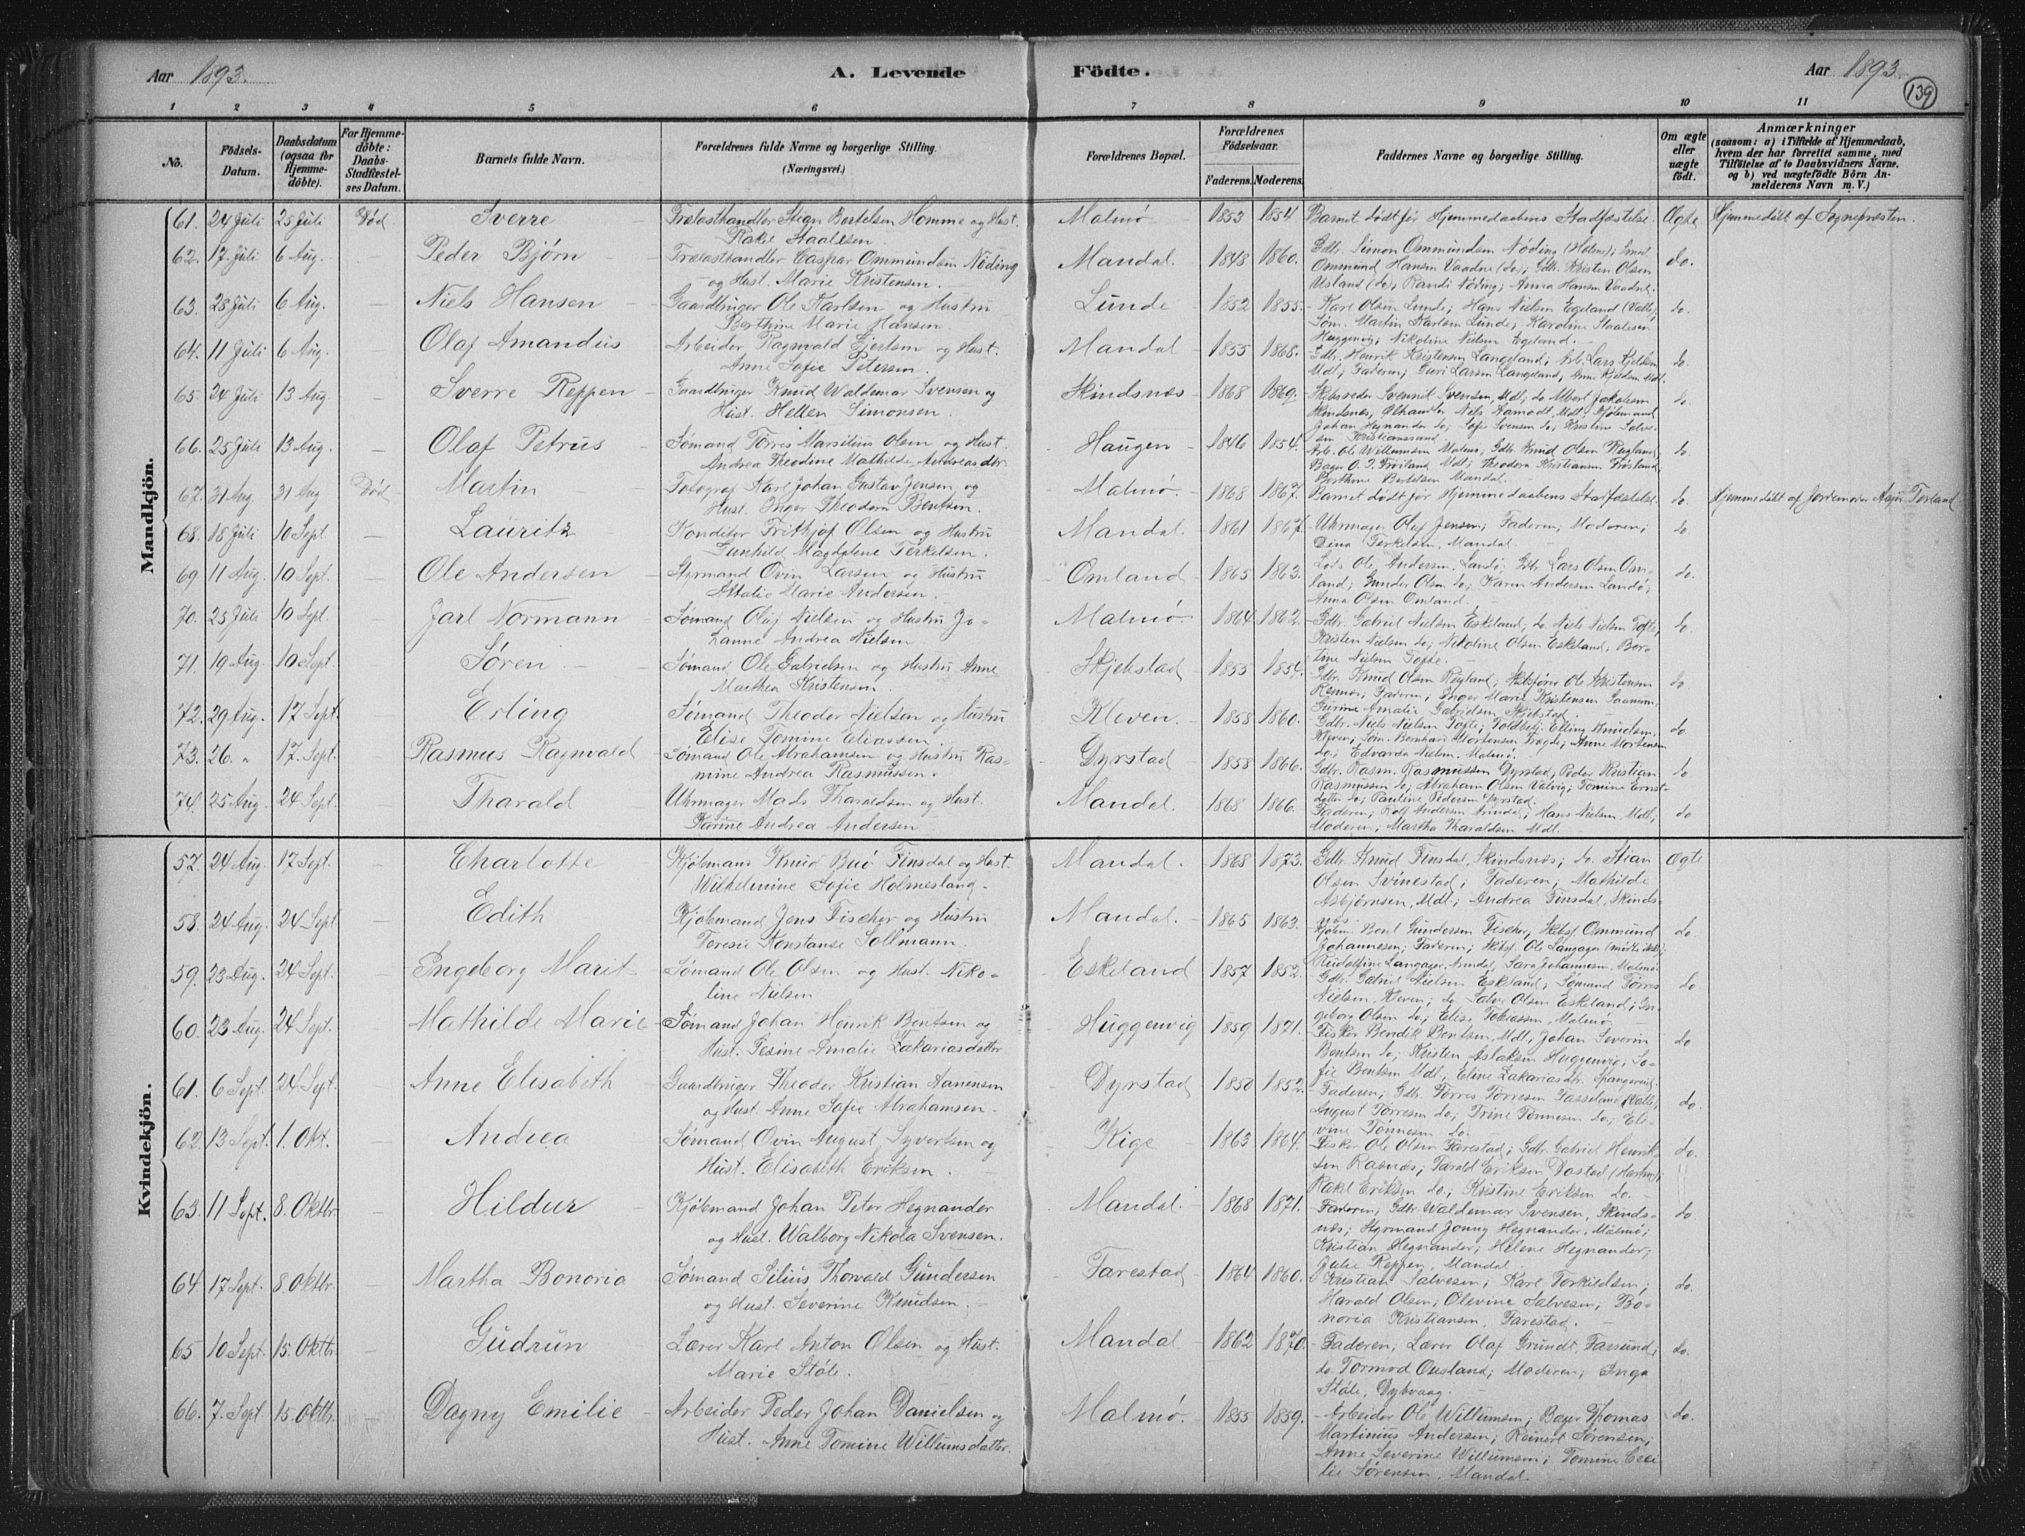 Aar 1893.
A. Levende
Födte.
Aar 1893.
139
1 2 3 4 5 6 7 8 9 10 11
No.
Födsels-Datum.
Daabsdatum (ogsaa for Hjemme-döbte).
For Hjemme-döbte: Daabs-Stadfæstel-ses Datum.
Barnets fulde Navn.
Forældrenes fulde Navne og borgerlige Stilling.
(Næringsvei.)
Forældrenes Bopæl.
Forældrenes Födselsaar.
Faderens. Moderens.
Faddernes Navne og borgerlige Stilling.
Om ægte eller uægte födt.
Anmærkninger
(saasom: a) i Tilfælde af Hjemmedaab, hvem der har forrettet samme, med Tilföielse af to Daabsvidners Navne, og b) ved uægtefödte Börn An-melderens Navn m. V.)
Mandkjön.
61. 24 Juli 25 Juli Död Sverre Trælasthandler Stian Bertelsen Homme og Hust. Rakel Staalesen Malmø 1853 1854 Barnet dödt før Hjemmedaabens Stadfæstelse. Ægte Hjemmedöbt af Sognepresten.
62. 17 Juli 6 Aug. – Peder Bjørn – Trælasthandler Casper Ommundsen Nöding og Hust. Marie Kristensen. Mandal. 1848 1860. Gdbr. Simon Ommundsen Nöding (Halsaa); Ommund Hansen Vaadne (do); Gdbr. Kristen Olsen Usland (do); Randi Nöding; Anna Hansen Vaadne. do.
63. 28 Juli 6 Aug. – Niels Hansen Gaardbruger Ole Karlsen og Hustru Berthine Marie Hansen. Lunde 1852 1855. Karl Olsen Lunde; Hans Nielsen Egeland; Søm. Martin Karlsen Lunde; Karoline Staalesen Huggenvig; Nikoline Nielsen Egeland. do.
64. 11 Juli 6 Aug. – Olaf Amandus Arbeider Ragnvald Gjertsen og Hust. Anne Sofie Petersen. Mandal 1855 1868. Gdbr. Henrik Kristensen Langeland; Arb. Lars Kjeldsen Mdl; Faderen; Guri Larsen Langeland; Anne Kjeldsen Mdl. do.
65. 24 Juli 13 Aug – Sverre Reppen – Gaardbruger Knud Waldemar Svensen og Hust. Hellen Simonsen. Skindsnæs 1868 1869. Skibsreder Svennil Svensen, Mdl; do Albert Jakobsen Skindsnæs; Ølhandler Niels Aamodt, Mdl; Kjøbmand Johan Hegnander do; Sofie Svensen do; Kristine Salvesen Kristianssand do.
66. 25 Juli 13 Aug. – Olaf Petrus – Sømand Tørres Marselius Olsen og Hust. Andrea Theodine Mathilde Andreasdtr. Haugen 1846 1854. Arb. Ole Willumsen Malmø; Gdbr. Knud Olsen Røgland; Bager O. T. Frøiland Mdl; Theodora Kristiansen Frøisland; Berthine Bertelsen Mandal. do.
67. 31 Aug. 31 Aug Död Martin Fotograf Karl Johan Gustav Jensen og Hust. Inger Theodora Bentsen. Malmø. 1868 1867. Barnet dödt før Hjemmedaabens Stadfæstelse. do. Hjemmedöbt af Jordemoder Torland
68. 18 Juli 10 Sept – Lauritz Konditor Frithjof Olsen og Hustru Gunhild Magdalene Terkelsen. Mandal 1861 1867. Uhrmager Olaf Jensen; Faderen; Moderen; Dina Terkelsen, Mandal. do
69 11 Aug. 10 Sept. – Ole Andersen Styrmand Ovin Larsen og Hustru Attalie Marie Andersen. Omland 1865 1863. Lods Ole Andersen Landø; Gdbr. Lars Olsen Omland; Gunder Olsen do; Karen Andersen Landø; Anna Olsen Omland. do.
70. 25 Juli 10 Sept. – Jarl Normann Sømand Oluf Nielsen og Hustru Johanne Andrea Nielsen Malmø 1864 1862. Gdbr. Gabriel Nielsen Eskeland; do. Niels Nielsen Tofte; Kristen Nielsen do; Nikoline Olsen Eskeland; Bortine Nielsen Tofte. do
71. 19 Aug. 10 Sept. – Søren – Sømand Ole Gabrielsen og Hustru Anne Marthea Kristensen. Skjebstad 1855 1854. Gdbr. Knud Olsen Røgland; Ole Kristensen; Faderen; Inger Marie Kristensen; Gurine Amalie Gabrielsen Skjebstad. do
72. 29 Aug. 17 Sept. – Erling Sømand Theodor Nielsen og Hustru Elise Tomine Eliassen Kleven. 1858 1860. Gdbr. Niels Nielsen Tofte; Toldbetj. Elling Knudsen, Kleven; Søm. Bernhard Mortensen Tregde; Anne Mortensen do; Edvarda Nielsen, Malmø. do
73. 26. „ 17. Sept. – Rasmus Ragnvald Sømand Ole Abrahamsen og Hustru Rasmine Andrea Rasmussen. Dyrstad 1858 1866. Gdbr. Rasm. Rasmussen Dyrstad; Peder Kristian Rasmussen do; Abraham Olsen Valvig; Tomine Ernstdatter do; Pauline Pedersen Dyrstad. do
74. 25 Aug. 24 Sept. – Tharald Uhrmager Mads Tharaldsen og Hust. Karine Andrea Andersen Mandal. 1868 1866. Faderen; Rolf Andersen Arendal; Hans Nielsen Mdl; Moderen; Martha Tharaldsen Mdl. do
Kvindekjön.
57. 24 Aug 17 Sept. – Charlotte Kjøbmand Knud Buø Finsdal og Hust. Wilhelmine Sofie Holmesland. Mandal. 1868 1873. Gdbr. Knud Finsdal, Skindsnæs; do. Stian Olsen Svinestad; Faderen; Mathilde Asbjørnsen, Mdl; Andrea Finsdal, Skindsnæs. Ægte
58. 24 Aug. 24 Sept – Edith Kjøbmand Jens Fischer og Hustru Teresie Konstanse Sollmann. Mandal. 1865 1863. Kjøbm. Bent Gundersen Fischer; Skibsf. Ommund Johannesen; Faderen; Skibsf. Ole Langager; Rudolfine Langager, Arendal; Sara Johannesen, Malmø. do.
59. 23 Aug. 24 Sept. – Ingeborg Marit Sømand Ole Olsen og Hust. Nikoline Nielsen Eskeland 1857 1852. Gdbr. Gabriel Nielsen Eskeland; Sømand Tørres Nielsen, Kleven; do Salve Olsen Eskeland; Ingeborg Olsen do; Elise Tobiassen, Malmø. do
60. 23 Aug. 24 Sept. – Mathilde Marie Sømand Johan Henrik Bentsen og Hust. Tesine Amalie Zakariasdatter Huggenvig 1859 1871. Fisker Bendik Bentsen, Mdl; Johan Severin Bentsen do; Kristen Aslaksen Huggenvig; Sofie Bentsen Mdl; Eline Zakariasdtr. Spangereid. do
61. 6 Sept. 24 Sept. – Anne Elisabeth Gaardbruger Theodor Kristian Aanensen og Hust. Anne Sofie Abrahamsen. Dyrstad 1850 1852. Faderen; Gdbr. Tørres Tørresen; August Tørresen do; Trine Tønnesen do; Elevine Tønnesen do. do.
62. 13 Sept. 1. Okt. – Andrea Sømand Ovin August Syvertsen og Hust. Elisabeth Eriksen. Kige 1863 1864. Fisker Ole Olsen Farestad; Gdbr. Gabriel Henriksen Rasnæs; Tarald Eriksen; Rakel Eriksen do; Kristine Eriksen do. do.
63. 11 Sept. 8. Oktbr. – Hildur Kjøbmand Johan Peter Hegnander og Hust. Walborg Nikola Svensen. Mandal 1868 1871. Faderen; Gdbr. Waldemar Svensen, Skindsnæs; Styrmand Jonny Hegnander, Malmø; Kristian Hegnander; Helene Hegnander; Julie Reppen, Mandal. do.
64. 17 Sept. 8 Oktbr. – Martha Bonoria Sømand Silius Thorvald Gundersen og Hust. Severine Knudsen. Farestad 1864 1860. Kristian Salvesen; Karl Torkildsen; Harald Olsen; Olevine Salvesen; Bonoria Kristiansen, Farestad. do.
65 10 Sept. 15. Oktbr. – Gudrun Lærer Karl Anton Olsen og Hust. Marie Støle. Mandal 1862 1870. Faderen; Lærer Olaf Grundt, Farsund; do Tormod Ousland; Moderen; Inga Støle, Dybvaag. do.
66. 7. Sept 15. Oktbr. – Dagny Emilie Arbeider Peder Johan Danielsen og Hust. Anne Tomine Willumsdatter. Malmø. 1855 1859. Arbeider Ole Willumsen; Bager Thomas Martinius Andersen; Reinert Sørensen; Anne Severine Willumsen; Tomine Cecilie Sørensen, Mandal. do.